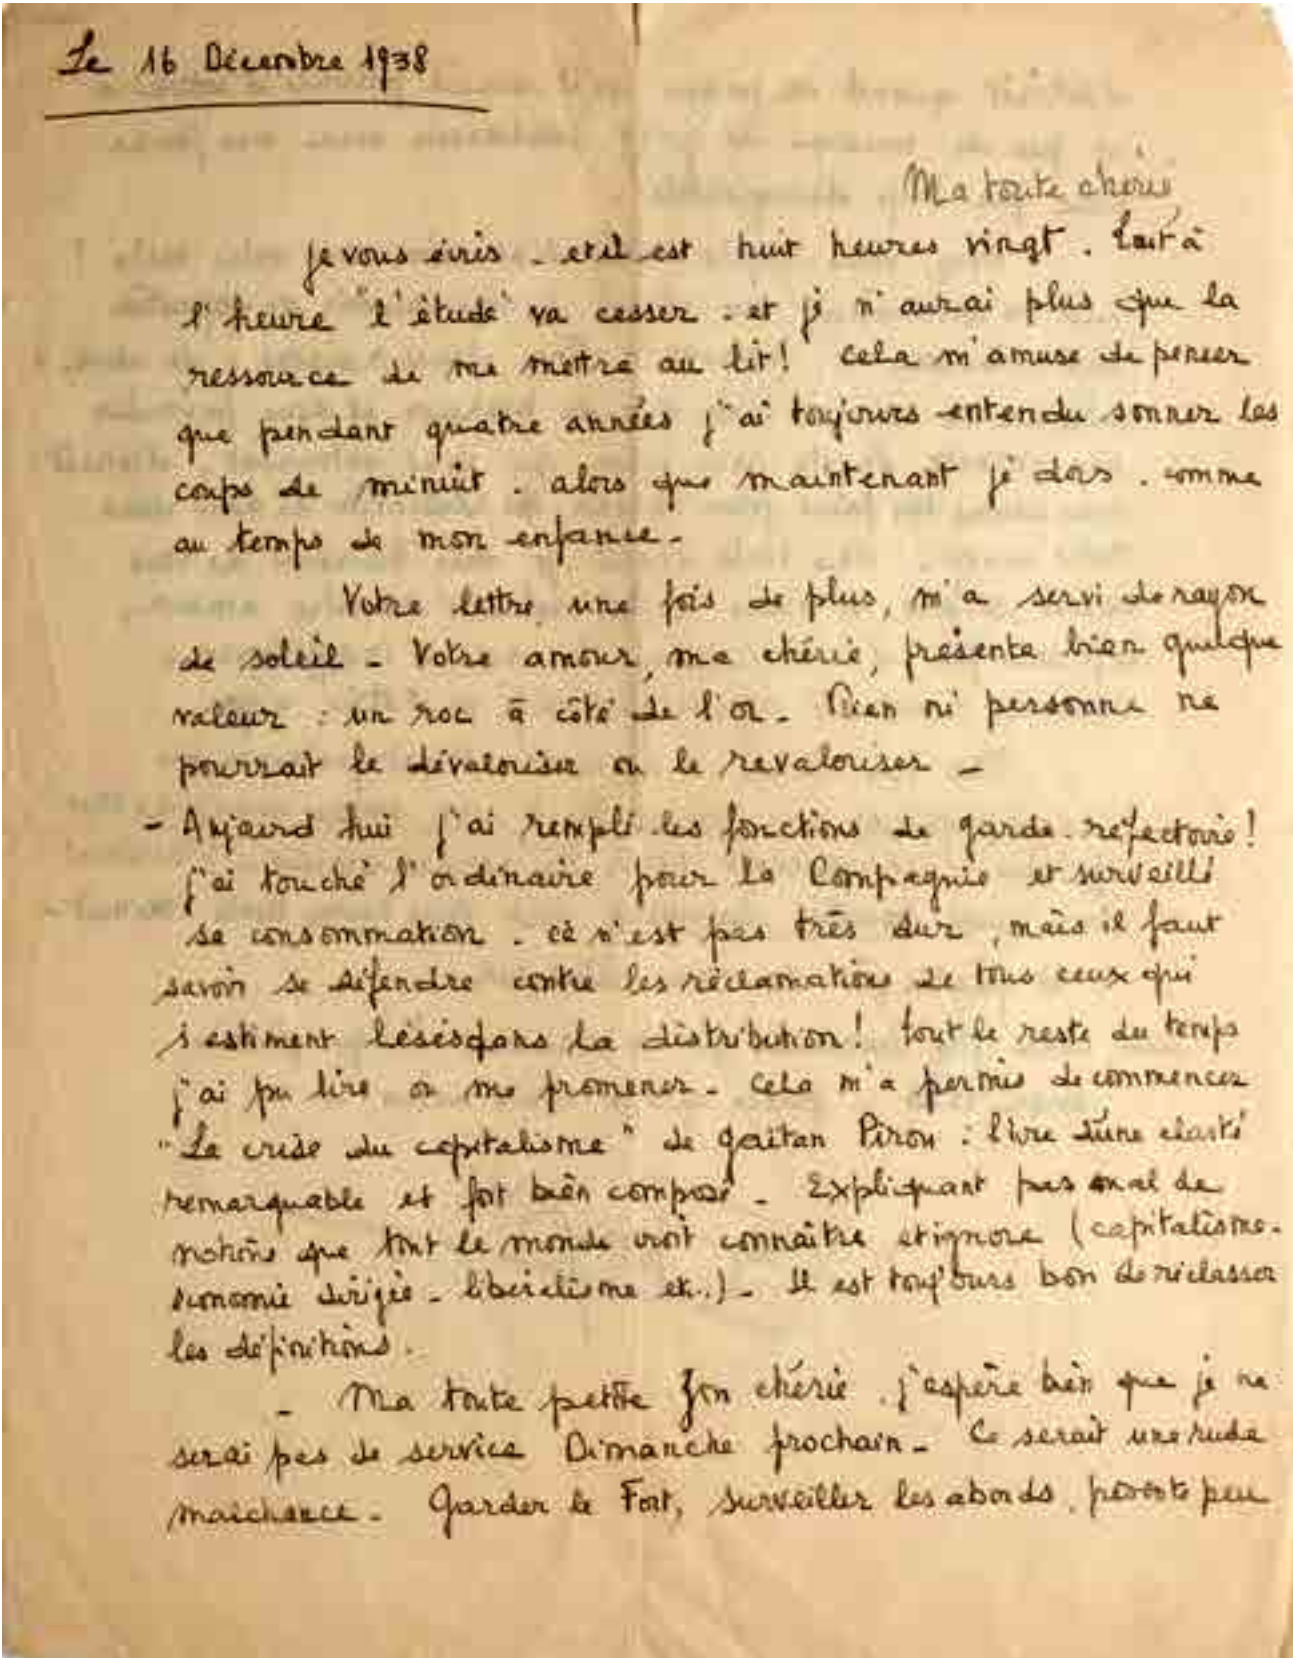 Le 16 Décembre 1938
Ma toute chérie
je vous écris - et il est huit heures vingt. Tout à
l'heure l'étude va cesser - et je n'aurai plus que la
ressource de me mettre au lit! Cela m'amuse de penser
que pendant quatre années j'ai toujours entendu sonner les
coups de minuit - alors que maintenant je dors - comme
au temps de mon enfance -
Votre lettre, une fois de plus, m'a servi de rayon
de soleil - Votre amour, ma chérie, présente bien quelque
valeur : un roc à côté de l'or - Rien ni personne ne
pourrait le dévaloriser ou le revaloriser -
- Aujourd'hui j'ai rempli les fonctions de garde-réfectoire!
j'ai touché l'ordinaire pour la Compagnie et surveillé
sa consommation - ce n'est pas très dur, mais il faut
savoir se défendre contre les réclamations de tous ceux qui
s'estiment lésés dans la distribution! tout le reste du temps
j'ai pu lire ou me promener - Cela m'a permis de commencer
"La crise du capitalisme" de Gaëtan Pirou : livre d'une clarté
remarquable et fort bien composé - Expliquant pas mal de
notions que tout le monde croit connaître et ignore (capitalisme -
économie dirigée - libéralisme etc..) - Il est toujours bon de reclasser
les définitions.
- Ma toute petite Zon chérie, j'espère bien que je ne
serai pas de service Dimanche prochain - Ce serait une rude
malchance - Garder le Fort, surveiller les abords, peu